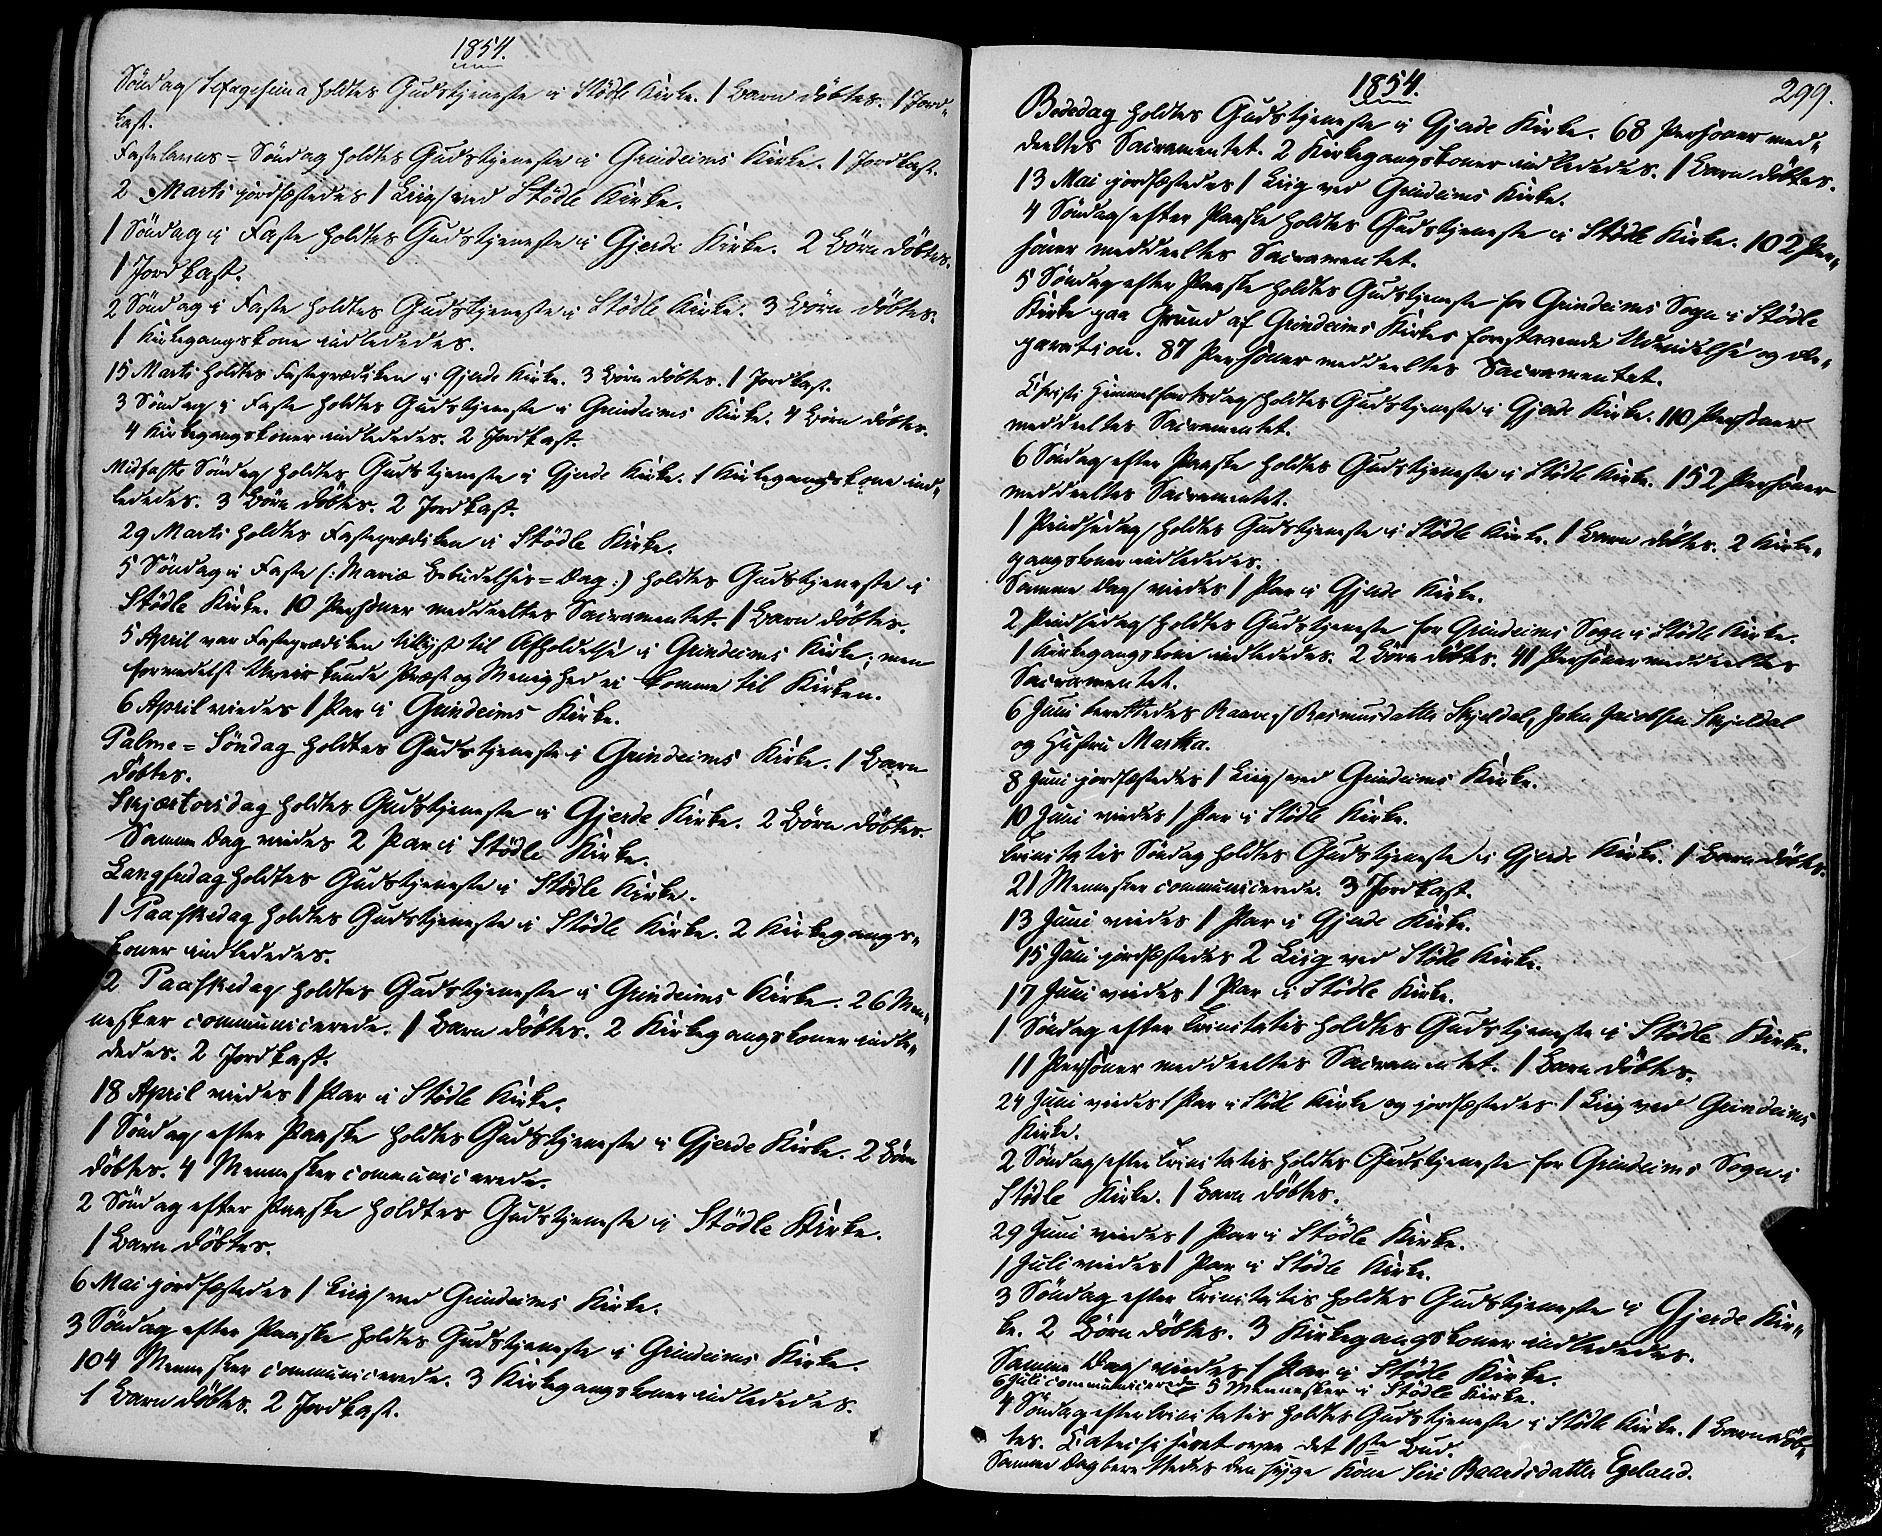 1854.
Söndag Sexagesima holdtes Gudstjeneste i Stödle Kirke. 1 Barn döbtes. 1 Jord„
kast.
Fastelavns=Söndag holdtes Gudstjeneste i Grindeims Kirke. 1 Jordkast.
2 Marts jordfæstedes 1 Liig ved Stödle Kirke.
1 Söndag i Faste holdtes Gudstjeneste i Gjerde Kirke. 2 Börn döbtes.
1 Jordkast.
2 Söndag i Faste holdtes Gudstjeneste i Stödle Kirke. 3 Börn döbtes.
1 Kirkegangskone indlededes.
15 Marts holdtes Fasteprædiken i Gjerde Kirke. 3 Börn döbtes. 1 Jordkast.
3 Söndag i Faste holdtes Gudstjeneste i Grindeims Kirke. 4 Börn döbtes.
4 Kirkegangskoner indlededes. 2 Jordkast.
Midfaste Söndag holdtes Gudstjeneste i Gjerde Kirke. 1 Kirkegangskone ind„
lededes. 3 Börn döbtes. 2 Jordkast.
29 Marts holdtes Fasteprædiken i Stödle Kirke.
5 Söndag i Faste (: Mariæ Bebudelses=Dag :) holdtes Gudstjeneste i
Stödle Kirke. 10 Personer meddeeltes Sacramentet. 1 Barn döbtes.
5 April var Fasteprædiken tillyst til Afholdelse i Grindeims Kirke, men
formedelst Uveir kunde Præst og Menighed ei komme til Kirken.
6 April viedes 1 Par i Grindeims Kirke.
Palme=Söndag holdtes Gudstjeneste i Grindeims Kirke. 1 Barn
döbtes.
Skjærtorsdag holdtes Gudstjeneste i Gjerde Kirke. 2 Börn döbtes.
Samme Dag viedes 2 Par i Stödle Kirke.
Langfredag holdtes Gudstjeneste i Stödle Kirke.
1 Paaskedag holdtes Gudstjeneste i Stödle Kirke. 2 Kirkegangs„
koner indlededes.
2 Paaskedag holdtes Gudstjeneste i Grindeims Kirke. 26 Men„
nesker communicerede. 1 Barn döbtes. 2 Kirkegangskoner indle„
dedes. 2 Jordkast.
18 April viedes 1 Par i Stödle Kirke.
1 Söndag efter Paaske holdtes Gudstjeneste i Gjerde Kirke. 2 Börn
döbtes. 4 Mennesker communicerede.
2 Söndag efter Paaske holdtes Gudstjeneste i Stödle Kirke.
1 Barn döbtes.
6 Mai jordfæstedes 1 Liig ved Grindeims Kirke.
3 Söndag efter Paaske holdtes Gudstjeneste i Grindeims Kirke.
104 Mennesker communicerede. 3 Kirkegangskoner indlededes.
1 Barn döbtes. 2 Jordkast.
1854.
299.
Bededag holdtes Gudstjeneste i Gjerde Kirke. 68 Personer med„
deeltes Sacramentet. 2 Kirkegangskoner indlededes. 1 Barn döbtes.
13 Mai jordfæstedes 1 Liig ved Grindeims Kirke.
4 Söndag efter Paaske holdtes Gudstjeneste i Stödle Kirke. 102 Per„
soner meddeeltes Sacramentet.
5 Söndag efter Paaske holdtes Gudstjeneste for Grindeims Sogn i Stödle
Kirke paa Grund af Grindeims Kirkes forestaaende Udvidelse og Re„
paration. 87 Personer meddeeltes Sacramentet.
Christi Himmelfartsdag holdtes Gudstjeneste i Gjerde Kirke. 110 Personer
meddeeltes Sacramentet.
6 Söndag efter Paaske holdtes Gudstjeneste i Stödle Kirke. 152 Personer
meddeeltes Sacramentet.
1 Pindsedag holdtes Gudstjeneste i Stödle Kirke. 1 Barn döbtes. 2 Kirke„
gangskoner indlededes.
Samme Dag viedes 1 Par i Gjerde Kirke.
2 Pindsedag holdtes Gudstjeneste for Grindeims Sogn i Stödle Kirke.
1 Kirkegangskone indlededes. 2 Börn döbtes. 41 Personer meddeeltes
Sacramentet.
6 Juni berettedes Rasmusdatter Skjeldal, John Jacobsen Skjeldal
og Hustru Martha.
8 Juni jordfæstedes 1 Liig ved Grindeims Kirke.
10 Juni viedes 1 Par i Stödle Kirke.
Trinitatis Söndag holdtes Gudstjeneste i Gjerde Kirke. 1 Barn döbtes.
21 Mennesker communicerede. 3 Jordkast.
13 Juni viedes 1 Par i Gjerde Kirke.
15 Juni jordfæstedes 2 Liig ved Stödle Kirke.
17 Juni viedes 1 Par i Stödle Kirke.
1 Söndag efter Trinitatis holdtes Gudstjeneste i Stödle Kirke.
11 Personer meddeeltes Sacramentet. 1 Barn döbtes.
24 Juni viedes 1 Par i Stödle Kirke og jordfæstedes 1 Liig ved Grindeims
Kirke.
2 Söndag efter Trinitatis holdtes Gudstjeneste for Grindeims Sogn i
Stödle Kirke. 1 Barn döbtes.
29 Juni viedes 1 Par i Stödle Kirke.
1 Juli viedes 1 Par i Stödle Kirke.
3 Söndag efter Trinitatis holdtes Gudstjeneste i Gjerde Kir„
ke. 2 Börn döbtes. 3 Kirkegangskoner indlededes.
Samme Dag viedes 1 Par i Stödle Kirke.
6 Juli communicerede 5 Mennesker i Stödle Kirke.
4 Söndag efter Trinitatis holdtes Gudstjeneste i Stödle Kirke. 1 Barn döb„
tes. Catechiseret over det 1ste Bud.
Samme Dag berettedes den syge Kone Siri Baardsdatter Egeland.